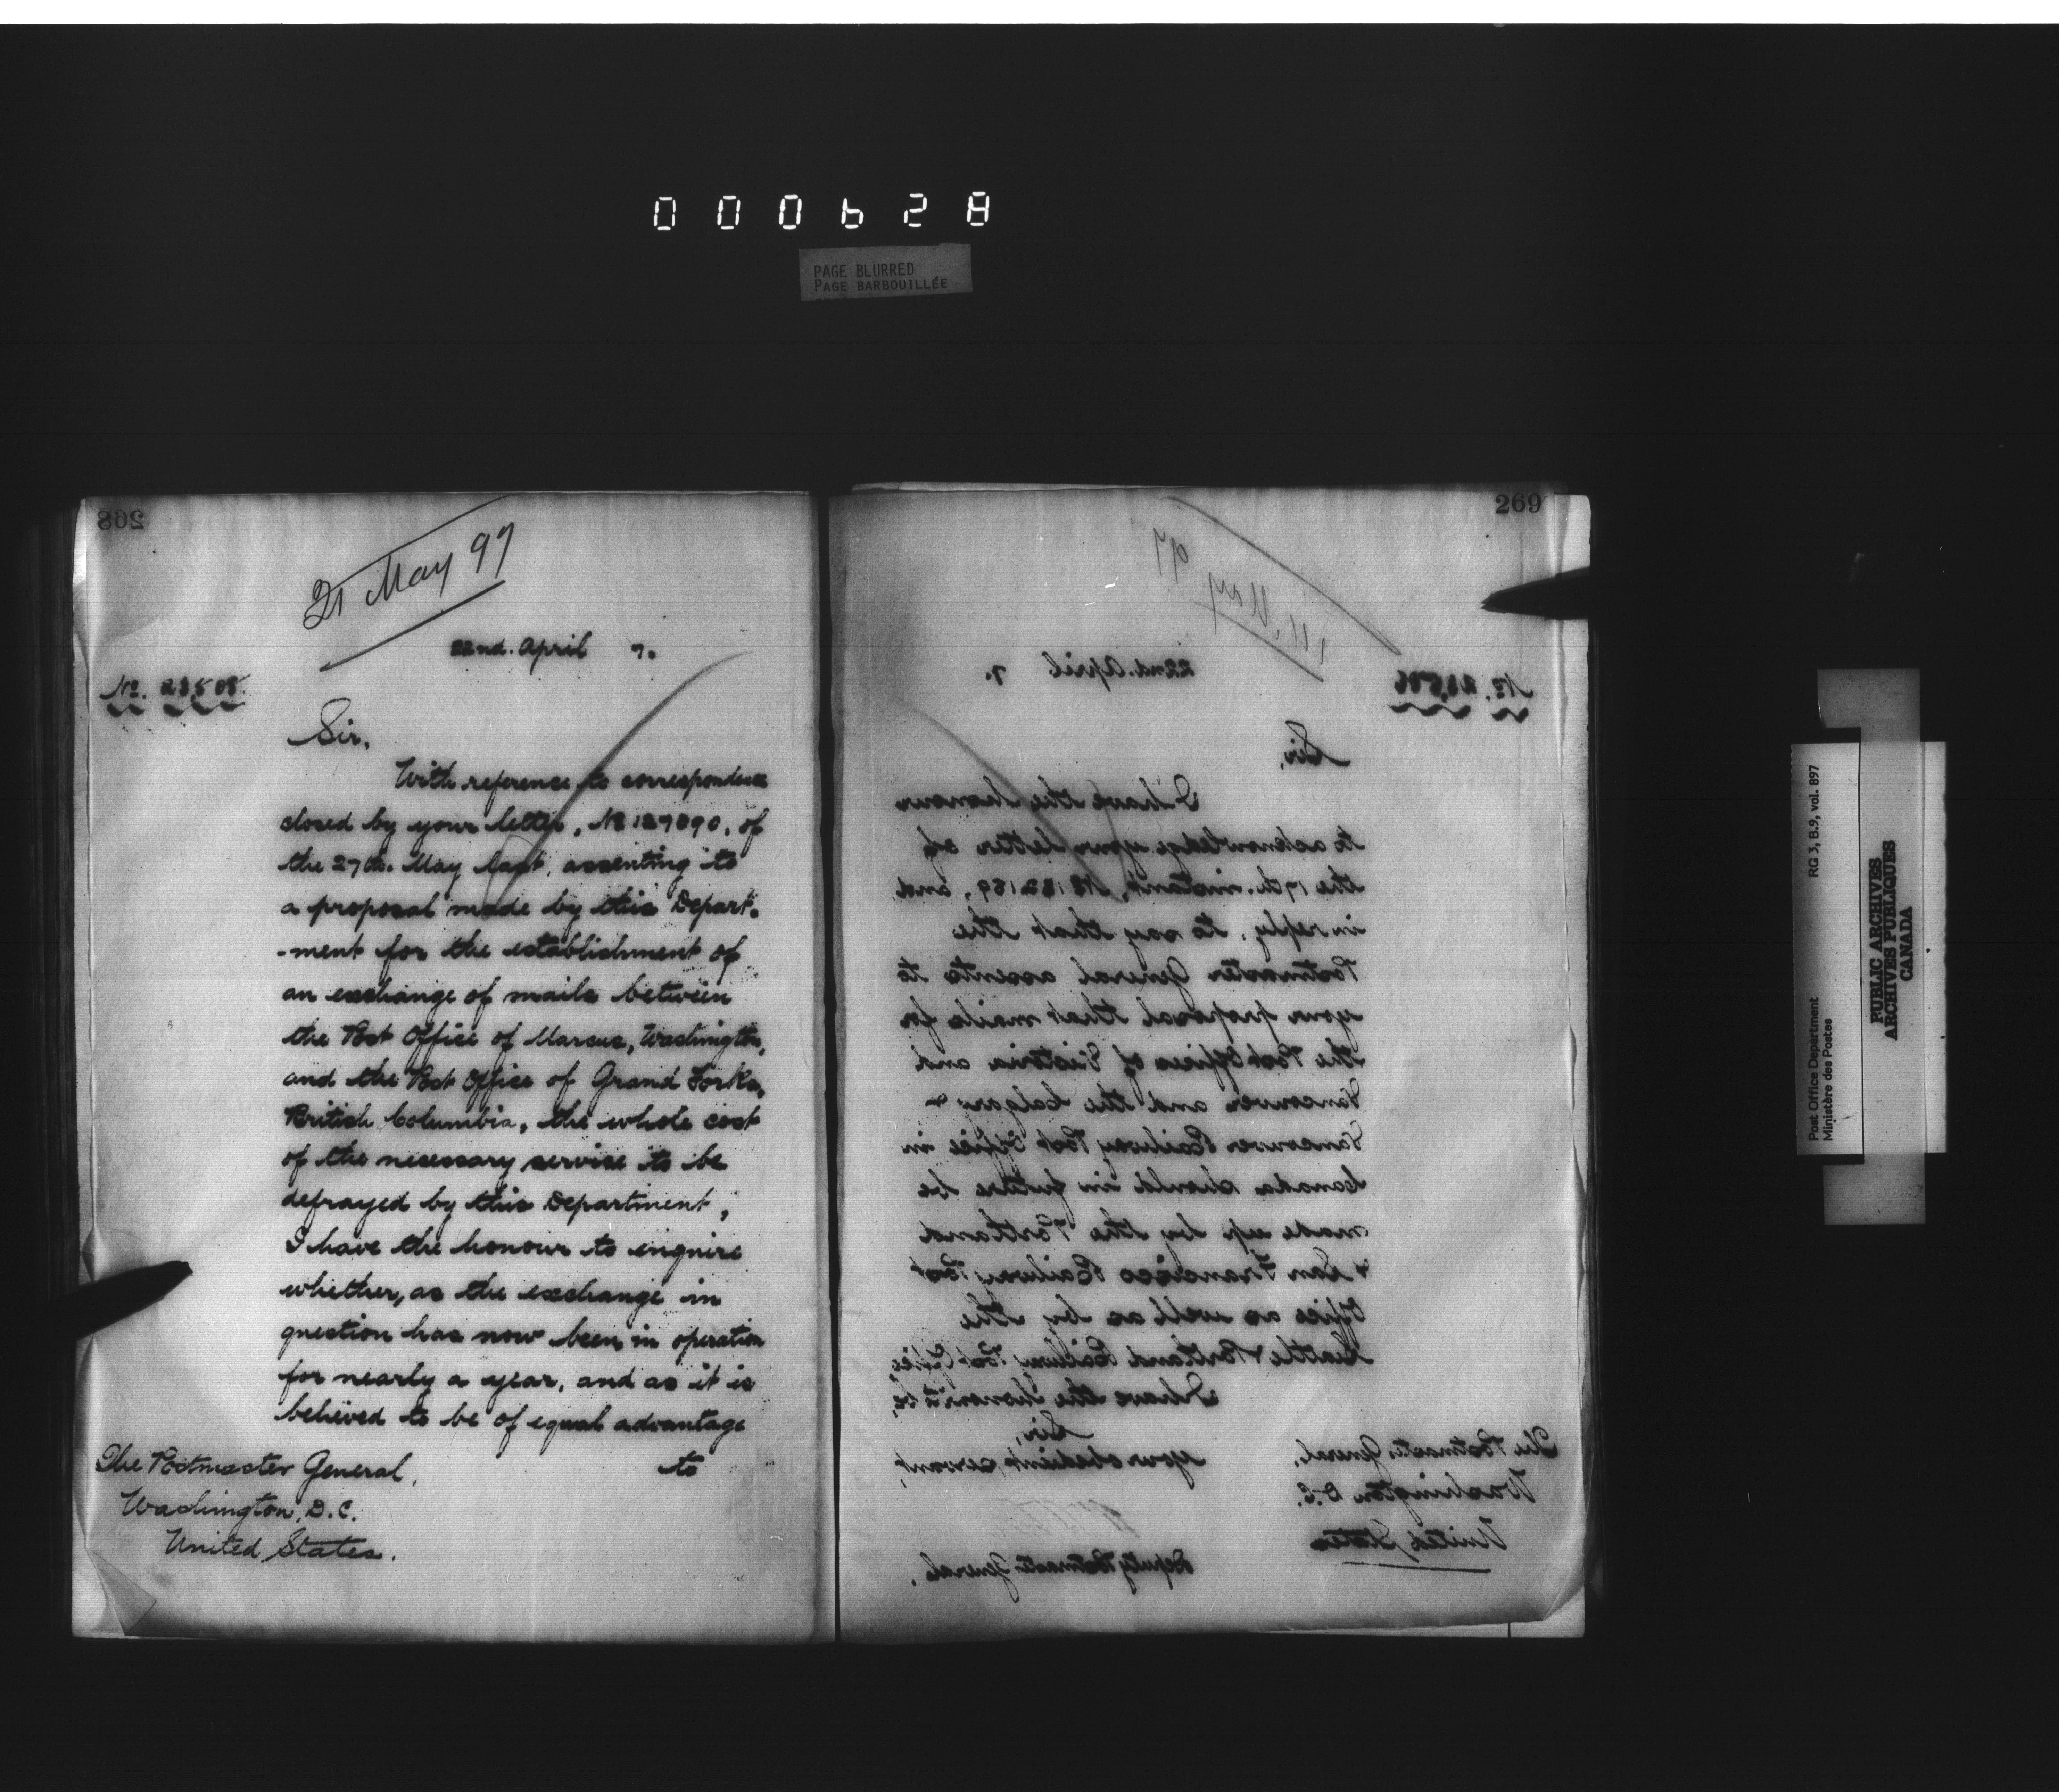 000628
PAGE BLURRED
PAGE BARBOUILLÉE
268
21 May 97
22nd. April 7.
No. 28508.
Sir,
With reference to correspondence
closed by your letter, No 129090, of
the 27th. May last, assenting to
a proposal made by this Depart-
-ment for the establishment of
an exchange of mails between
the Post Office of Marcus, Washington,
and the Post Office of Grand Forks,
British Columbia, the whole cost
of the necessary service to be
defrayed by this Department,
I have the honour to enquire
whether, as the exchange in
question has now been in operation
for nearly a year, and as it is
believed to be of equal advantage
to
The Postmaster General,
Washington, D.C.
United States.
269
May 97
22nd. April 7.
No.
Sir,
I have the honour
to acknowledge your letter of
the 17th. instant, No 132169, and
in reply, to say that the
Postmaster General assents to
your proposal that mails for
the Post Offices of Victoria and
Vancouver and the Calgary &
Vancouver Railway Post Office in
Canada should in future be
made up by the Portland
& San Francisco Railway Post
Office as well as by the
Seattle & Portland Railway Post Office,
I have the honour to be,
Sir,
Your obedient servant,
Deputy Postmaster General.
The Postmaster General,
Washington D.C.
United States
Post Office Department RG 3, B.9, vol. 897
Ministère des Postes
PUBLIC ARCHIVES
ARCHIVES PUBLIQUES
CANADA